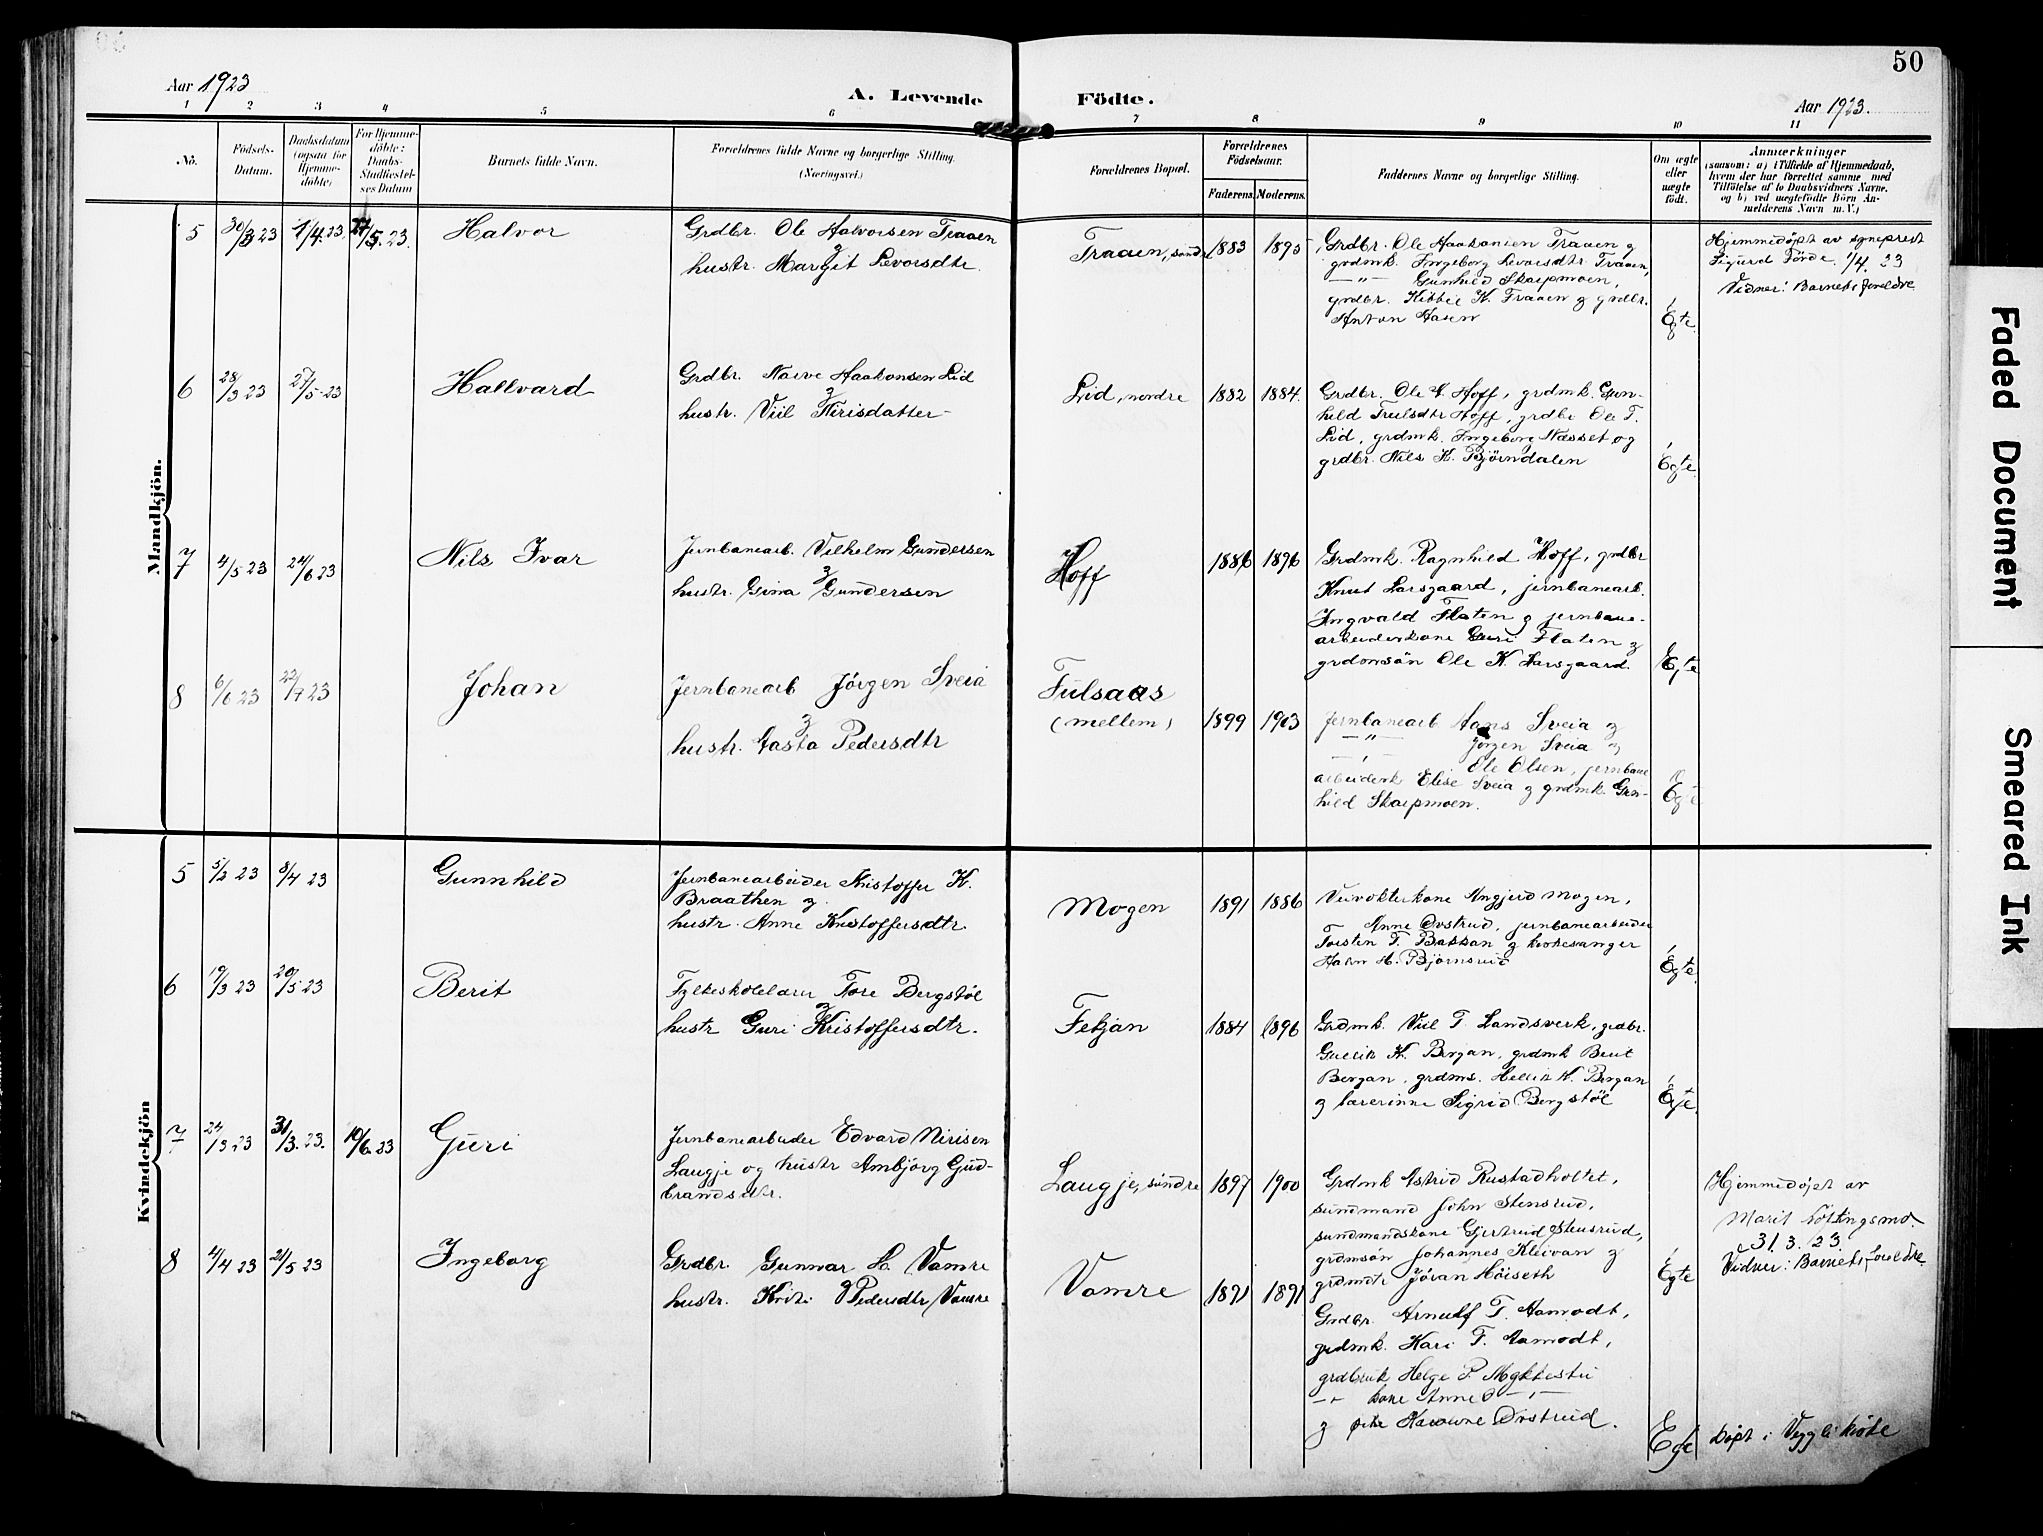 50
Aar 1923
A. Levende Födte.
Aar 1923.
1 2 3 4 5 6 7 8 9 10 11
No.
Födsels-
Datum.
Daabsdatum
(ogsaa for
Hjemme-
döbte)
For Hjemme-
döbte:
Daabs-
Stadfæstel-
ses Datum
Barnets fulde Navn.
Forældrenes fulde Navne og borgerlige Stilling.
(Næringsvei.)
Forældrenes Bopæl.
Forældrenes
Födselsaar.
Faderens.
Moderens.
Faddernes Navne og borgerlige Stilling.
Om ægte
eller
uægte
födt.
Anmærkninger
(saasom: a) i Tilfælde af Hjemmedaab,
hvem der har forrettet samme med
Tilföielse af to Daabsvidners Navne.
og b) ved uægtefödte Börn An-
melderens Navn m.V.)
Mandkjön.
5 30/3 23 1/4. 23. 27/5. 23. Halvor
Grdbr. Ole Halvorsen Traaen
&
hustr. Margit Levorsdtr.
Traaen, søndre 1883 1895
Grdbr. Ole Haakonsen Traaen &
grdmk. Ingeborg Levorsdtr. Traaen,
—"— Gunhild Skarpmoen,
grdbr. Kittil K. Traaen & grdbr.
Anton Aasen
Egte.
Hjemmedøpt av sogneprest
Sigurd Førde. 1/4. 23
Vidner: Barnets foreldre
6 28/3 23 27/5 23 Hallvard
Grdbr. Narve Haakonsen Lid
&
hustr. Viil Nirisdatter
Lid, nordre 1882 1884.
Grdbr. Ole H. Hoff, grdmk. Gun-
hild Trulsdtr Hoff, grdbr Ole T.
Lid, grdmk. Ingeborg Næsset og
grdbr. Nils K. Bjørndalen
Egte.
7 4/5 23 24/6 23 Nils Ivar
Jernbanearb. Vilhelm Gundersen
&
hustr. Gina Gundersen
Hoff 1886 1896
Grdmk. Ragnhild Hoff, grdbr
Knut Larsgaard, jernbanearb.
Ingvald Flaten & jernbane-
arbeiderkone Guri Flaten &
grdmsøn Ole K. Larsgaard.
Egte
8 6/6 23 22/7 23 Johan
Jernbanearb Jørgen Sveia
&
hustr. Aasta Pedersdtr
Fulsaas
(mellem) 1899 1903
Jernbanearb Hans Sveia &
—"— Jørgen Sveia &
—"— Ole Olsen, jernbane
arbeiderk Elise Sveia & grdmk. Gun-
hild Skarpmoen.
Egte
Kvindekjön
5 5/2 23 8/4 23 Gunnhild
Jernbanearbeider Kristoffer K.
Braathen &
hustr. Anne Kristoffersdtr.
Mogen 1891 1886
Veivokterkone Angjerd Mogen,
Anne Øvstrud, jernbanearbeider
Torsten T. Bakkan & kirkesanger
Halvor H. Bjørnsrud
Egte.
6 19/3 23 20/5 23 Berit
Fylkeskolelærer Tore Bergstøl
&
hustr Guri Kristoffersdtr.
Fekjan 1884 1896
Grdmk. Viil T. Landsverk, grdbr.
Gullik K. Bergan, grdmk Berit
Bergan, grdms. Hellik K. Bergan
& lærerinne Sigrid Bergstøl
Egte.
7 24/3 23 31/3. 23. 10/6. 23 Guri
Jernbanearbeider Edvard Nirisen
Laugje og hustr Ambjørg Gud-
brandsdtr.
Laugje, søndre 1897 1900
Grdmk Astrid Rustadholtet,
sundmand John Stensrud,
sundmandskone Gjertrud Stensrud,
grdmsøn Johannes Kleivan &
grdmdtr Jøran Høiseth
Egte
Hjemmedøpt av
Marit
31. 3. 23
Vidner: Barnets foreldre
8 4/4 23 21/5 23 Ingeborg
Grdbr. Gunnar H. Vamre
&
hustr. Kristi Pedersdtr Vamre
Vamre 1891 1891
Grdbr. Arnulf T. Aamodt,
grdmk. Kari T. Aamodt,
grdbruk Helge P. Mykkestu
—"— kone Anne —"—
& pike Karoline Øvstrud.
Egte
Døpt i Veggli kirke
Faded Document
Smeared Ink